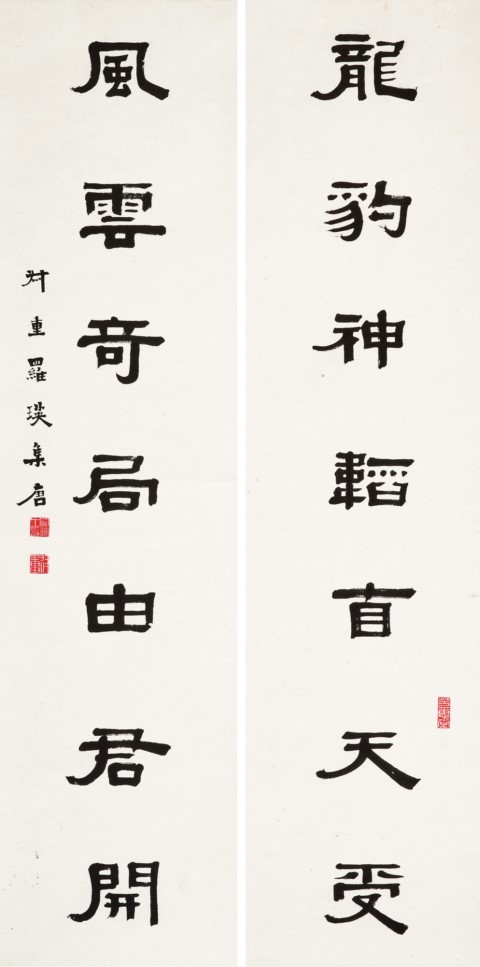 龍豹神韜天受
風雲奇局由君開
叔重羅瑛集唐